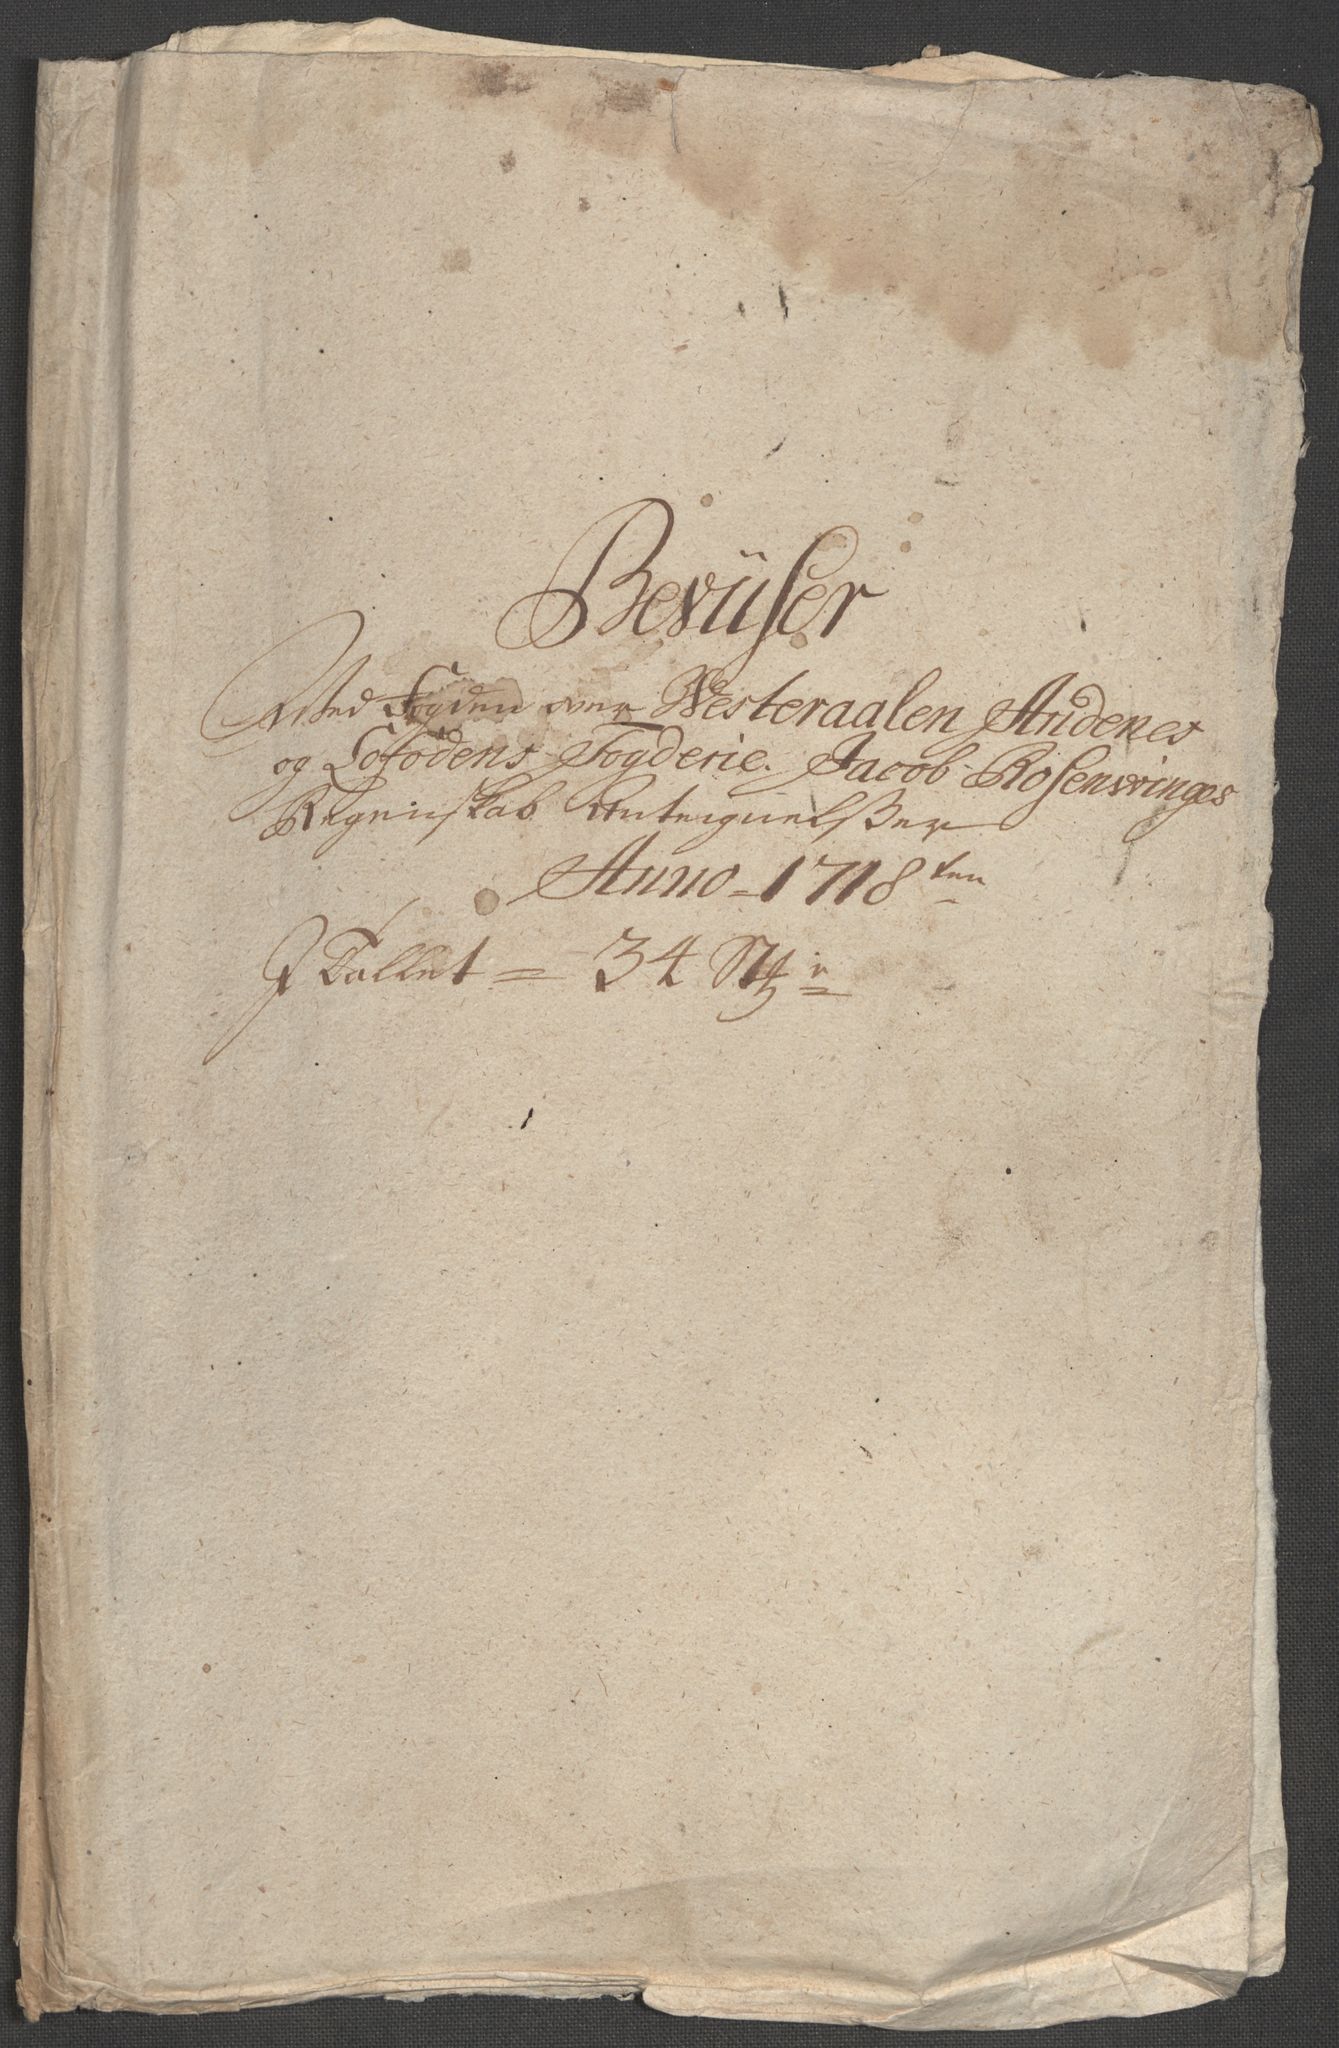 Bevüser
Med Fogden over Westeraalen Andenes
og Lofodens Fogderie. Jacob Rosenvinges
Regenskab Antegnelsser
Anno 1718ten
J Tallet = 34 St:r